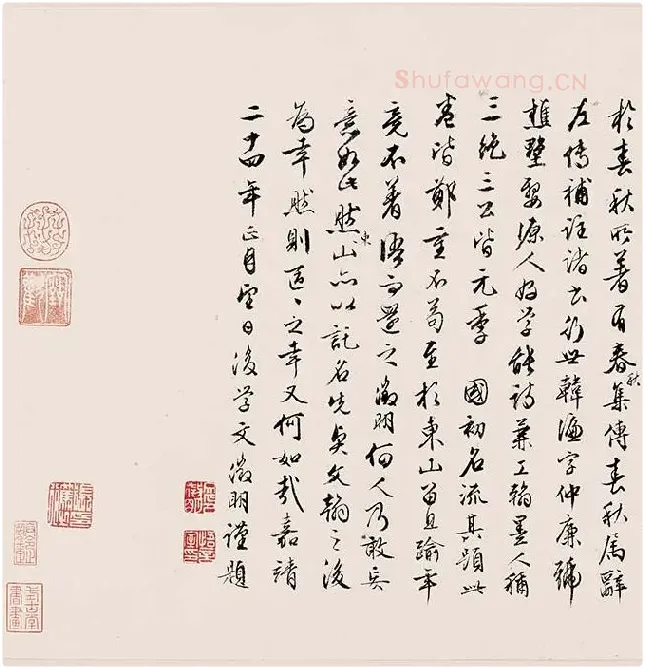 Shufawang.CN
於春秋所著有春秋集傳春秋屬辭
左傳補註諸書行世韓濂字仲廉號
樵墅婺源人好學能詩兼工翰墨人稱
三絕三公皆元季 國初名流其題此
卷皆鄭重不苟至於東山留且踰年
竟不著語而還之徵明何人乃敢
意如此然東山亦以託名先文翰之後
為幸然則區〻之幸又何如哉嘉靖
二十四年正月望日後學文徵明謹題